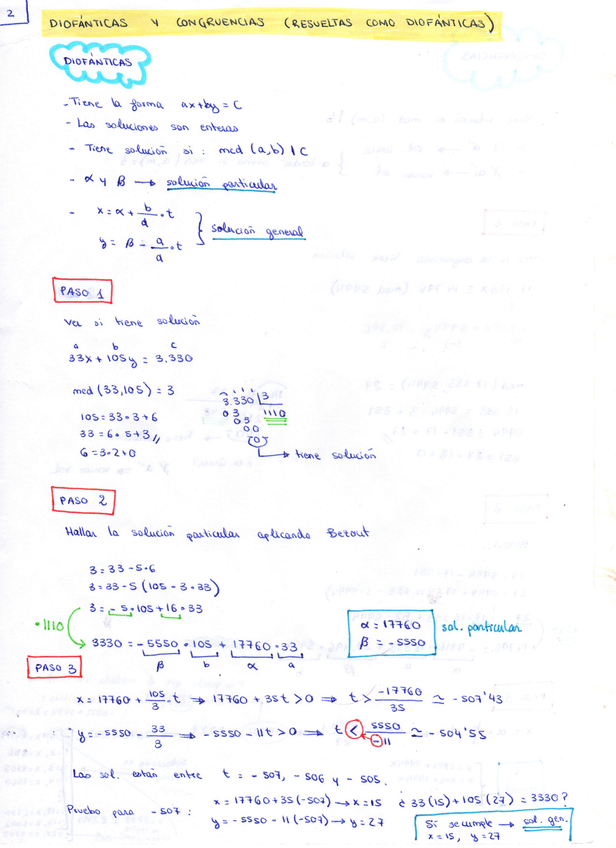 2
DIOFÁNTICAS Y CONGRUENCIAS (RESUELTAS COMO DIOFÁNTICAS)
DIOFÁNTICAS
- Tiene la forma ax+by = C
- Las soluciones son enteras
- Tiene solución si : mcd (a,b) | C
- α y β → solución particular
- x = α + b/d · t
y = β - a/d · t
solución general
PASO 1
Ver si tiene solución
a b c
33x + 105y = 3.330
mcd (33,105) = 3
105 = 33·3+6
33 = 6·5+3 //
6 = 3·2+0
3.330 | 3
03 1110
03
00
(0)
→ tiene solución
PASO 2
Hallar la solución particular aplicando Bezout
3 = 33 - 5·6
3 = 33 - 5 (105 - 3·33)
3 = - 5·105 + 16·33
·1110
3330 = -5550 · 105 + 17760 · 33
β b α a
α = 17760
β = -5550
sol. particular
PASO 3
x = 17760 + 105/3 · t ⇒ 17760 + 35t > 0 ⇒ t > -17760/35 ≃ -507'43
y = -5550 - 33/3 ⇒ -5550 - 11t > 0 ⇒ t < 5550/-11 ≃ -504'55
Las sol. están entre t = -507, -506 y -505.
Pruebo para -507 : x = 17760 + 35(-507) → x = 15 ¿ 33(15) + 105(27) = 3330?
y = -5550 - 11(-507) → y = 27
Si se cumple → sol. gen.
x = 15, y = 27